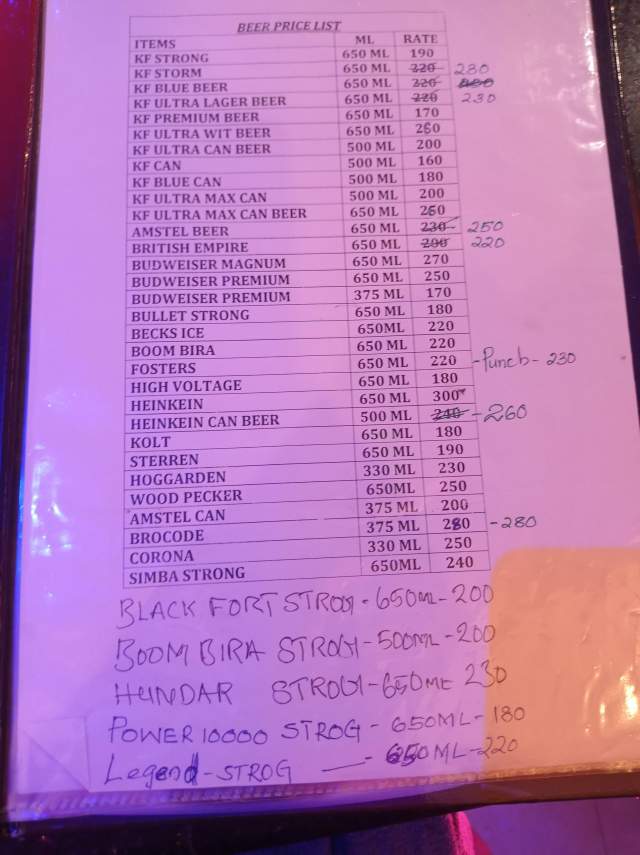 BEER PRICE LIST
ITEMS ML RATE
KF STRONG 650 ML 190
KF STORM 650 ML 220 230
KF BLUE BEER 650 ML 220
KF ULTRA LAGER BEER 650 ML 220 230
KF PREMIUM BEER 650 ML 170
KF ULTRA WIT BEER 650 ML 260
KF ULTRA CAN BEER 500 ML 200
KF CAN 500 ML 160
KF BLUE CAN 500 ML 180
KF ULTRA MAX CAN 500 ML 200
KF ULTRA MAX CAN BEER 650 ML 260
AMSTEL BEER 650 ML 230 250
BRITISH EMPIRE 650 ML 200 220
BUDWEISER MAGNUM 650 ML 270
BUDWEISER PREMIUM 650 ML 250
BUDWEISER PREMIUM 375 ML 170
BULLET STRONG 650 ML 180
BECKS ICE 650ML 220
BOOM BIRA 650 ML 220
FOSTERS 650 ML 220 -Punch- 230
HIGH VOLTAGE 650 ML 180
HEINKEIN 650 ML 300
HEINKEIN CAN BEER 500 ML 240 -260
KOLT 650 ML 180
STERREN 650 ML 190
HOGGARDEN 330 ML 230
WOOD PECKER 650ML 250
AMSTEL CAN 375 ML 200
BROCODE 375 ML 280 -280
CORONA 330 ML 250
SIMBA STRONG 650ML 240
BLACK FORT STROG - 650ML - 200
BOOM BIRA STROG - 500ML - 200
HUNDAR STROG - 650ML 230
POWER 10000 STROG - 650ML - 180
Legend - STROG - 650ML - 220